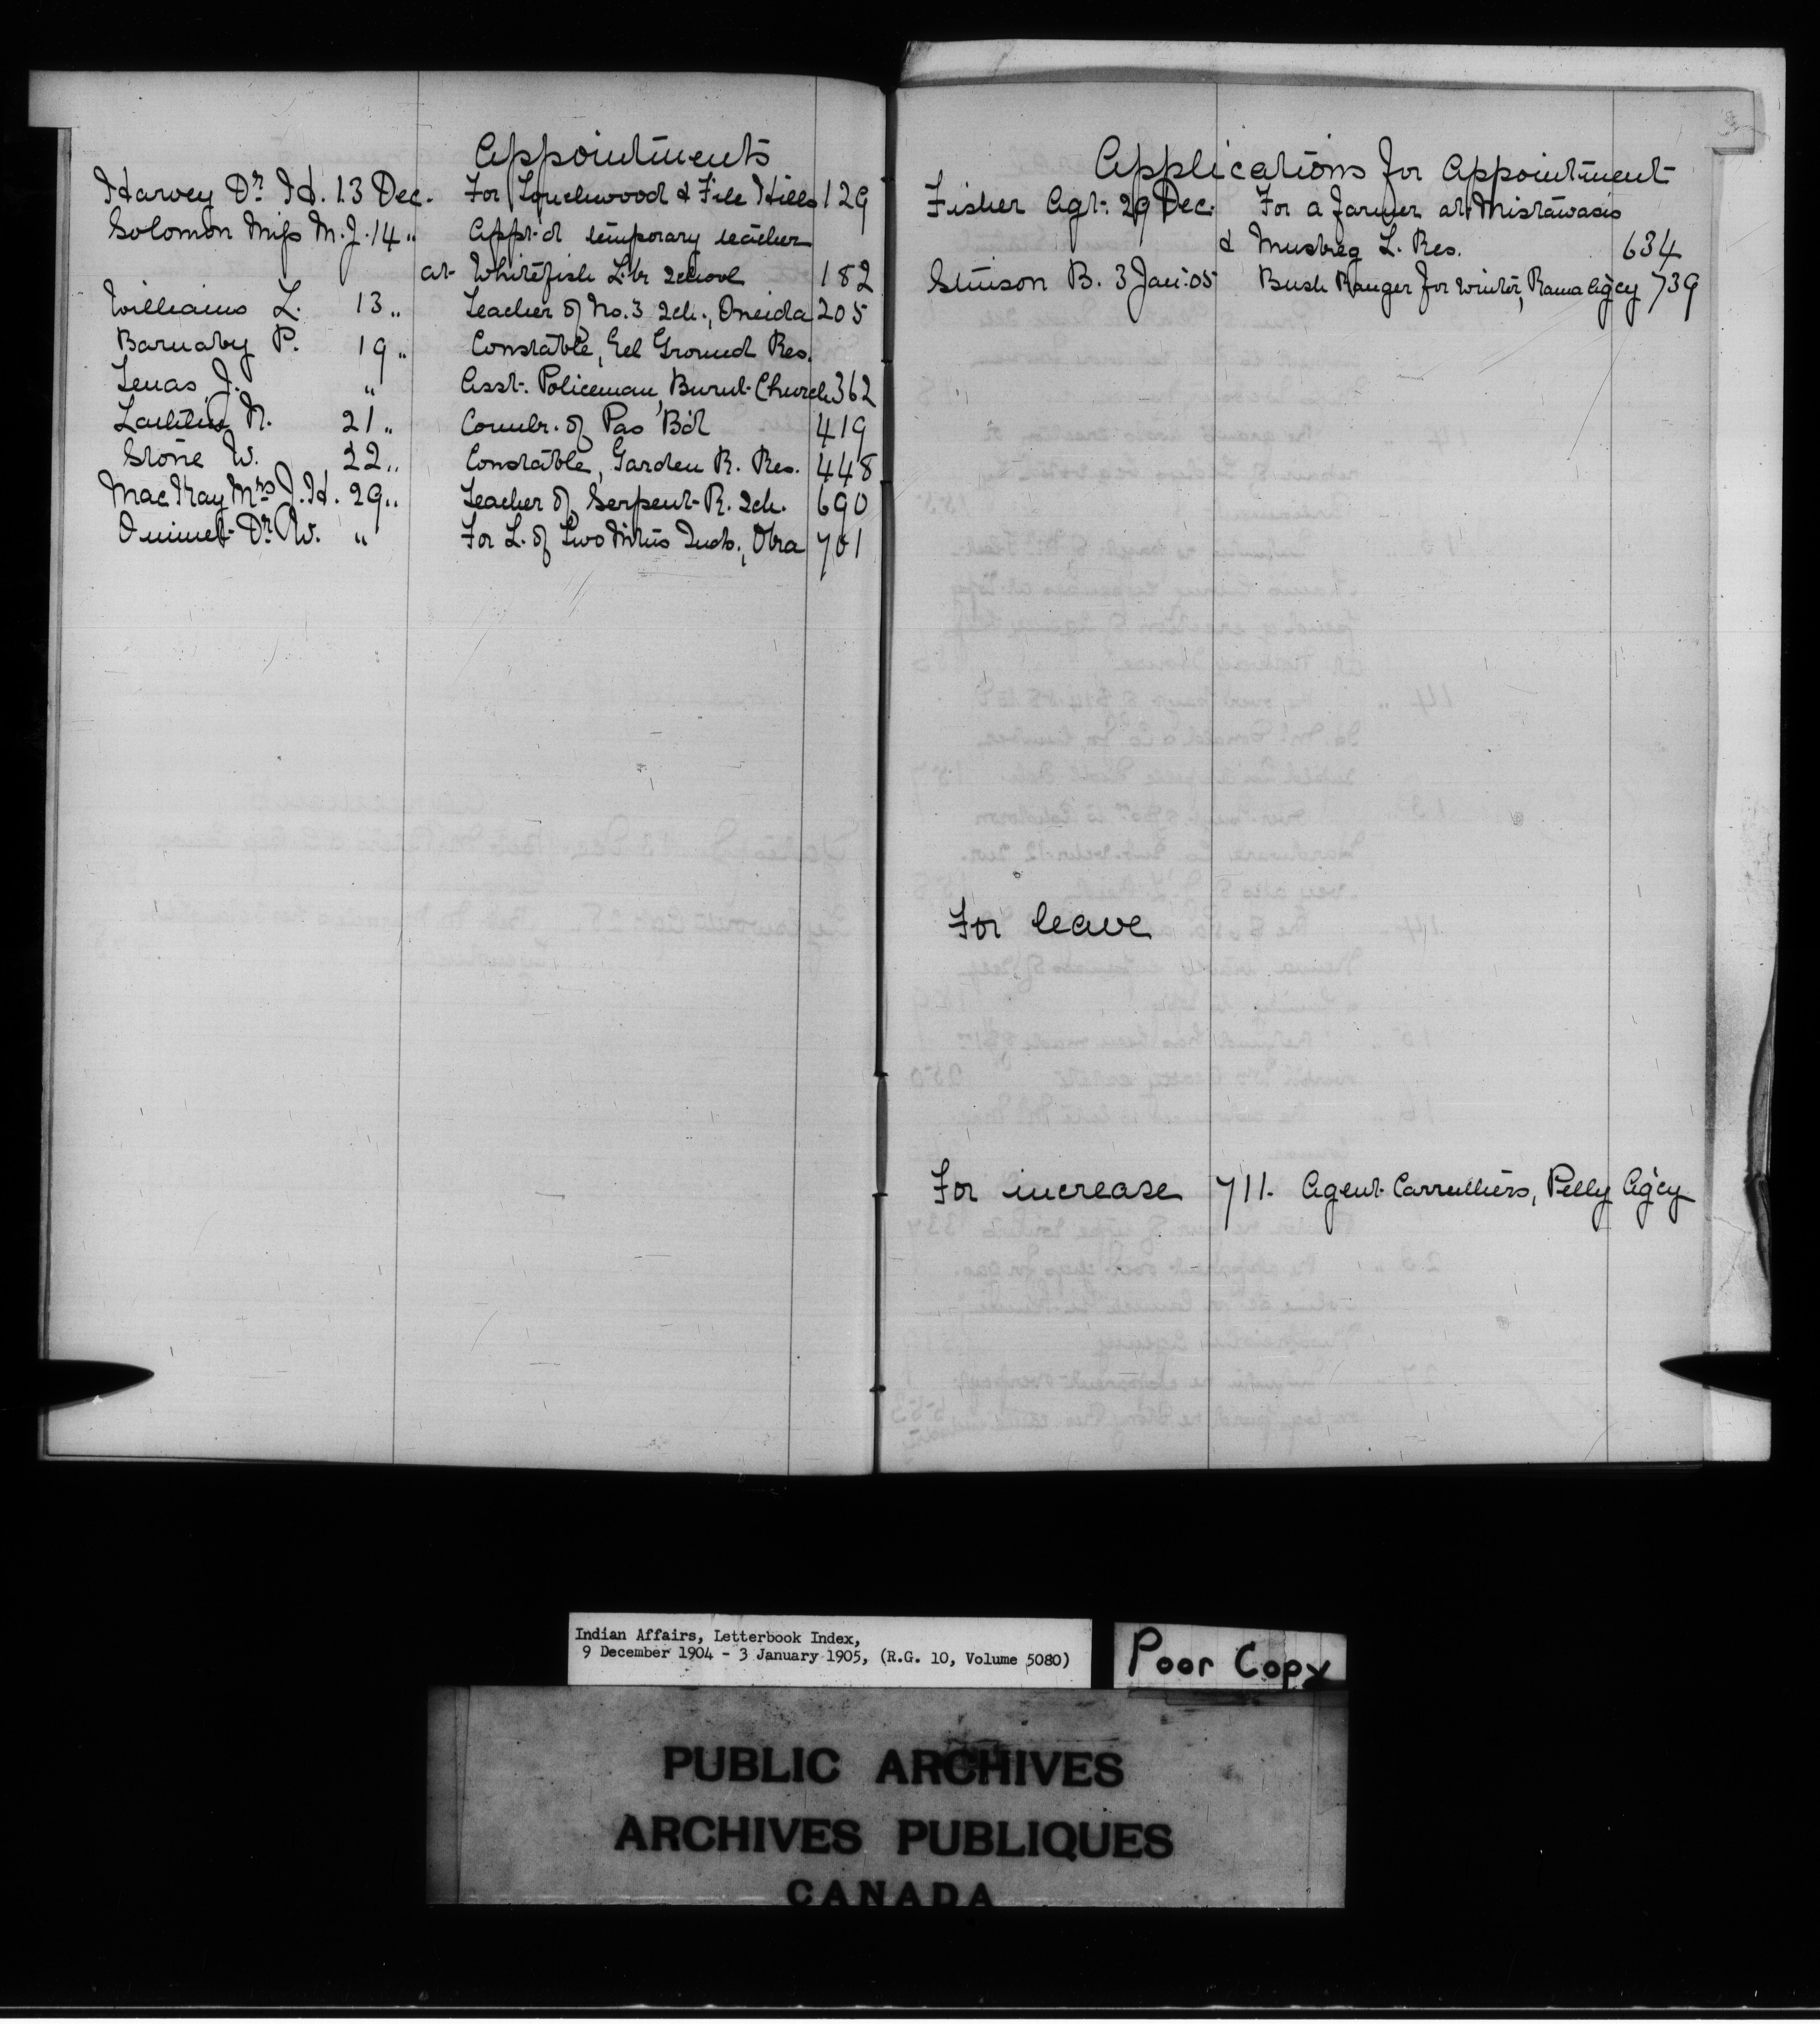 Appointments
Harvey Dr. H. 13 Dec. For Touchwood & File Hills 129
Solomon Miss M. J. 14 " Appt'd temporary teacher
at Whitefish L. br school 182
Williams L. 13 " Teacher of No. 3 Sch., Oneida 205
Barnaby P. 19 " Constable, Eel Ground Res.
Tenas, J. " Asst. Policeman, Burnt Church 362
N. 21 " Comlr. of Pas B'd 419
Stone W. 22 " Constable, Garden R. Res. 448
MacKay Mrs J. H. 29 " Teacher of Serpent R. Sch. 690
Ouimet Dr. W. " For L. of Two Mtns Inds., Oka 701
Applications for Appointment
Fisher Agt. 29 Dec. For a farmer at Mistawasis
& Muskeg L. Res. 634
Stinson B. 3 Jan: 05 Bush Ranger for winter, Rama Ag'cy 739
For leave
For increase 711. Agent Carruthers, Pelly Ag'cy
Indian Affairs, Letterbook Index,
9 December 1904 - 3 January 1905, (R.G. 10, Volume 5080)
Poor Copy
PUBLIC ARCHIVES
ARCHIVES PUBLIQUES
CANADA